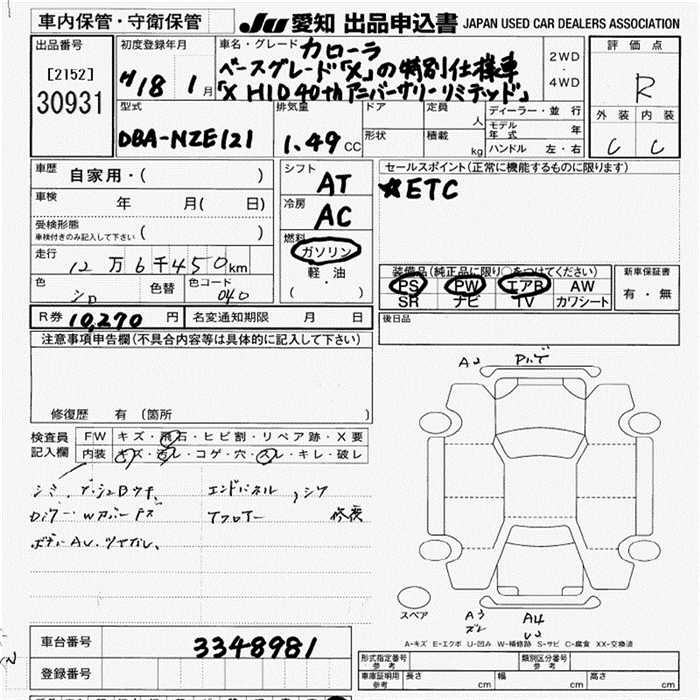 車内保管・守衛保管 JU愛知 出品申込書 JAPAN USED CAR DEALERS ASSOCIATION
出品番号
[2152]
30931
初度登録年月
H18 1月
車名・グレード カローラ
ベースグレード「X」の特別仕様車
「X HID 40thアニバーサリーリミテッド」
2WD
・
4WD
評価点
R
外装 内装
C C
型式
DBA-NZE121
排気量
1.49CC
ドア
形状
定員 人
積載 kg
ディーラー・並行
モデル年式 年
ハンドル 左・右
車歴 自家用・( )
車検 年 月( 日)
受検形態
車検付きのみ記入して下さい ( )
走行 12万6千450km
色 シロ 色替 色コード 040
シフト AT
冷房 AC
燃料
ガソリン
軽・油
( ・ )
セールスポイント(正常に機能するものに限ります)
☆ETC
装備品(純正品に限り○をつけてください)
PS PW エアB AW
SR ナビ TV カワシート
新車保証書
有・無
R券 10,270円 名変通知期限 月 日
後日品
注意事項申告欄(不具合内容等は具体的に記入して下さい)
修復歴 有 (箇所
検査員
記入欄
FW キズ・飛石・ヒビ割・リペア跡・X要
内装 キズ・汚レ・コゲ・穴・スレ・キレ・破レ
シミ
エンドパネル
修復
A2
スペア
A3
A4
U2
A-キズ E-エクボ U-凹み W-補修跡 S-サビ C-腐食 XX-交換済
車台番号 3348981
登録番号
形式指定番号
参考
類別区分番号
参考
車庫証明用
参考
長さ cm 幅 cm 高さ cm